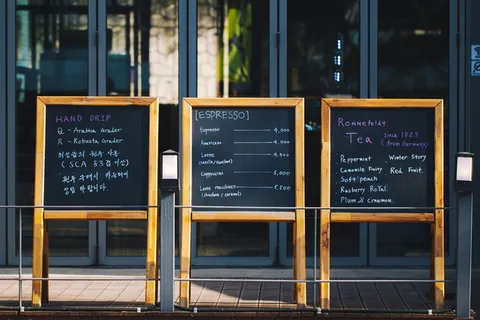 HAND DRIP
Q - Arabia Grader
R - Robusta Grader
최상급의 원두 사용
(SCA 83점 이상)
원두 구매시 카톡
상담 바랍니다.
[ESPRESSO]
Espresso 4,000
Americano 4,000
Latte 4,500
(vanilla/hazelnut)
Cappuccino 5,000
Latte macchiato 5,500
(vanilla/caramel)
Ronnefeldt
Tea since 1823
(from Germany)
Peppermint Winter Story
Camomile Fairy Red Fruit
Soft peach
Rasberry Royal
Plum & cinnamon